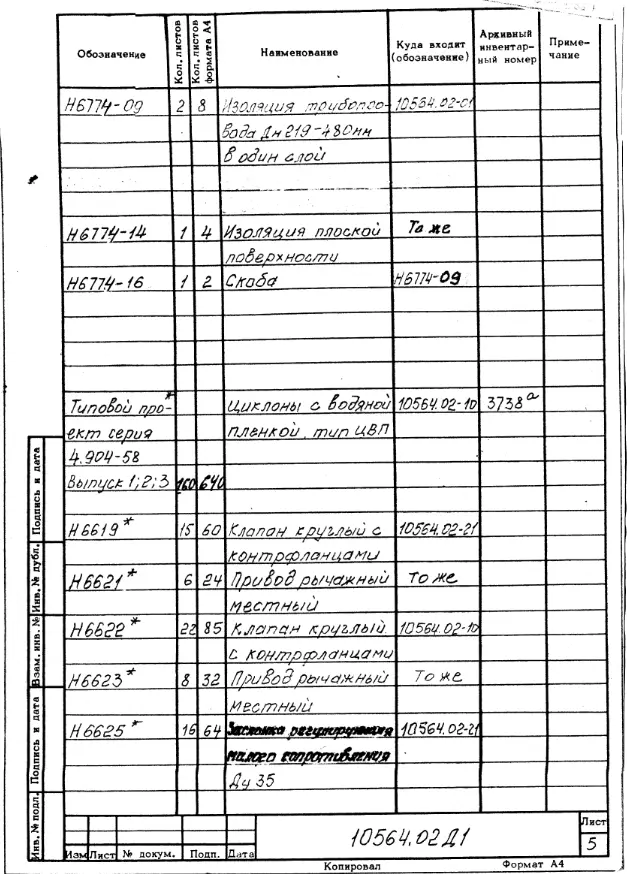 Обозначение Кол. листов Кол. листов формата А4 Наименование Куда входит (обозначение) Архивный инвентарный номер Примечание
Н6774-09 2 8 Изоляция трубопро- 10564.02-01
вода Дн 219-480мм
в один слой
Н6774-14 1 4 Изоляция плоской То же
поверхности
Н6774-16 1 2 Скоба Н6774-09
Типовой про-* Циклоны с водяной 10564.02-10 3738а
ект серия пленкой, тип ЦВП
4.904-58
Выпуск 1;2;3 160 640
Н6619* 15 60 Клапан круглый с 10564.02-21
контрфланцами
Н6621* 6 24 Привод рычажный То же
местный
Н6622* 22 85 Клапан круглый 10564.02-10
с контрфланцами
Н6623* 8 32 Привод рычажный То же
местный
Н6625* 16 64 Заслонка регулирующая 10564.02-21
малого сопротивления
Ду 35
Подпись и дата
Инв. № дубл.
Взам. инв. №
Подпись и дата
Инв. № подл.
Изм Лист № докум. Подп. Дата
10564.02Д1
Лист
5
Копировал Формат А4